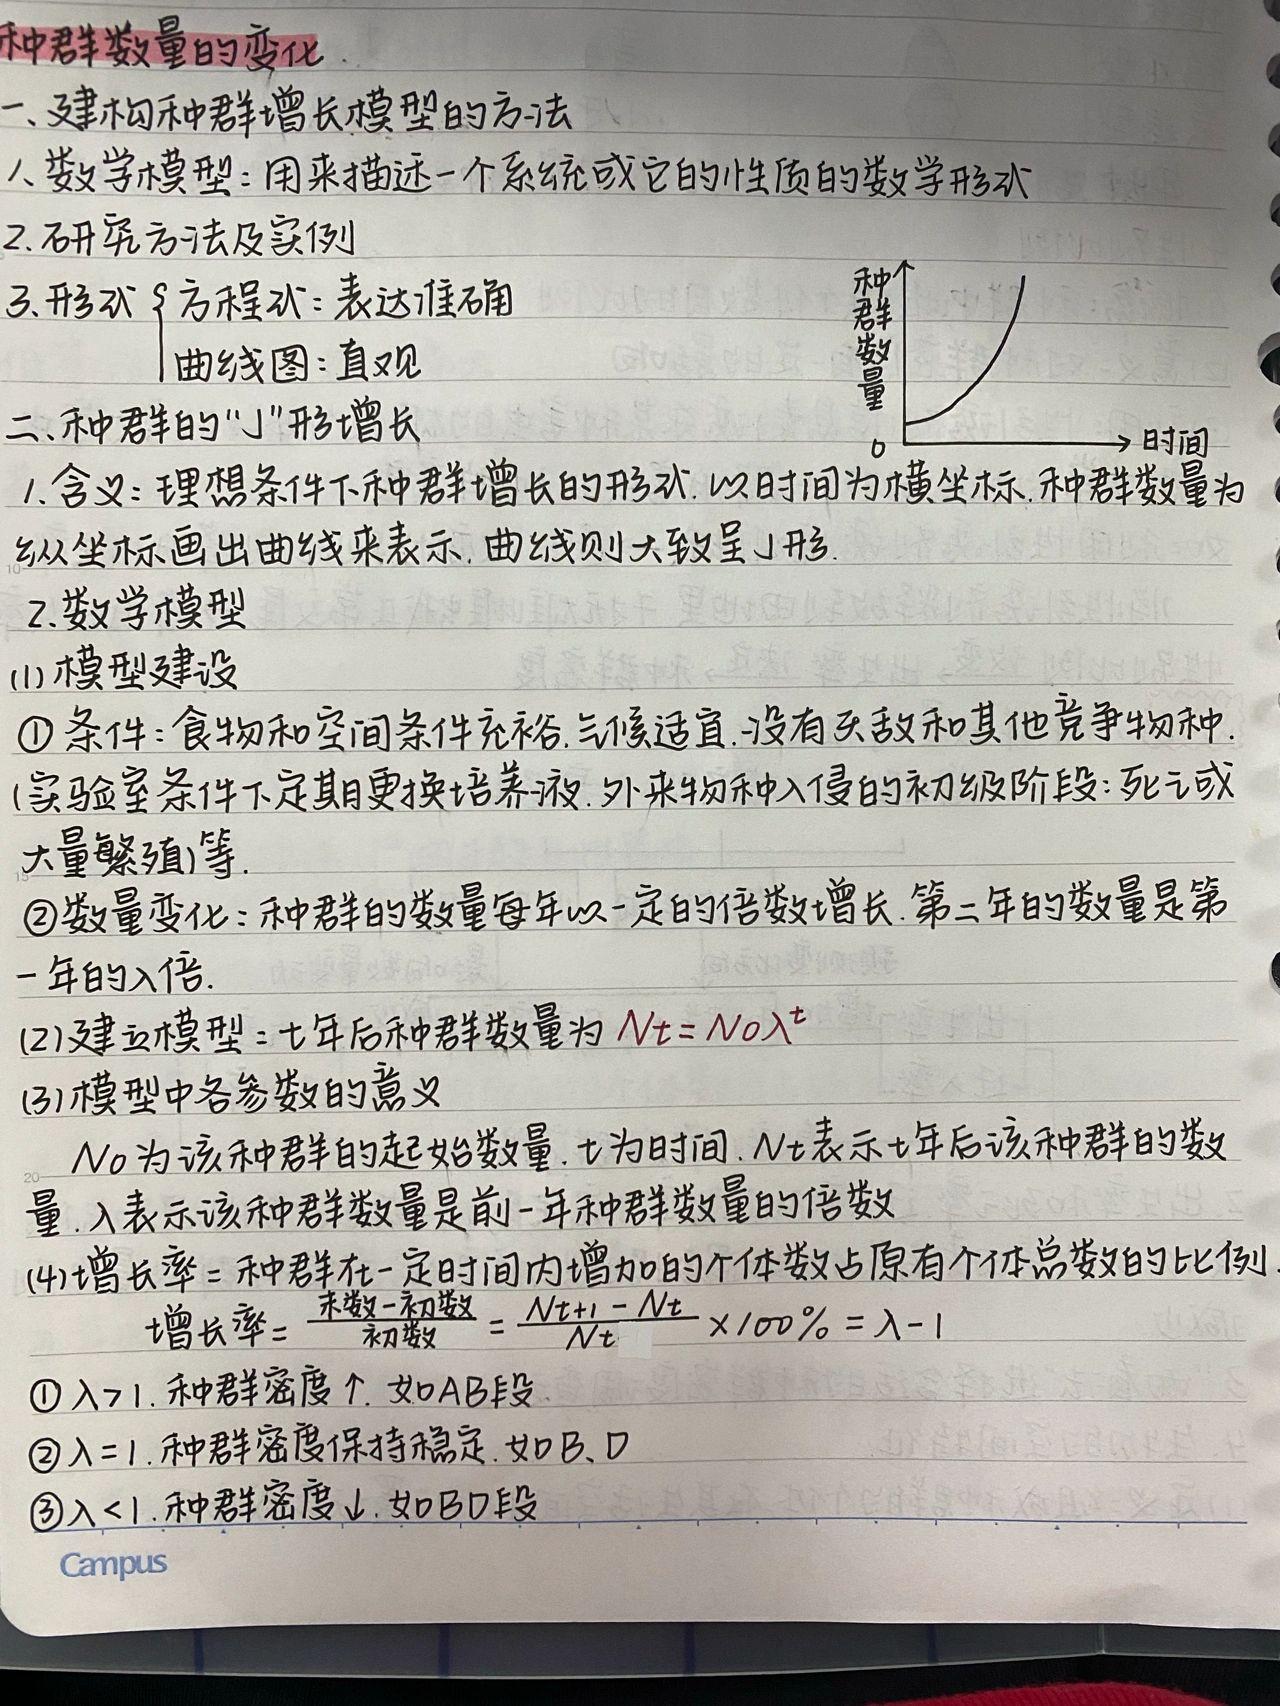 种群数量的变化.
一、建构种群增长模型的方法
1、数学模型：用来描述一个系统或它的性质的数学形式
2.研究方法及实例
3.形式{方程式：表达准确
曲线图：直观
种群数量
0
时间
二、种群的“J”形增长
1.含义：理想条件下种群增长的形式.以时间为横坐标.种群数量为
纵坐标画出曲线来表示.曲线则大致呈J形.
2.数学模型
(1)模型建设
①条件：食物和空间条件充裕.气候适宜.没有天敌和其他竞争物种.
(实验室条件下定期更换培养液.外来物种入侵的初级阶段：死亡或
大量繁殖)等.
②数量变化：种群的数量每年以一定的倍数增长.第二年的数量是第
一年的λ倍.
(2)建立模型：t年后种群数量为 Nt=N0λ^t
(3)模型中各参数的意义
N0为该种群的起始数量.t为时间.Nt表示t年后该种群的数
量.λ表示该种群数量是前一年种群数量的倍数
(4)增长率=种群在一定时间内增加的个体数占原有个体总数的比例.
增长率=末数-初数/初数=Nt+1-Nt/Nt×100%=λ-1
①λ>1.种群密度↑.如AB段.
②λ=1.种群密度保持稳定.如B、D
③λ<1.种群密度↓.如BD段
Campus
10
15
20